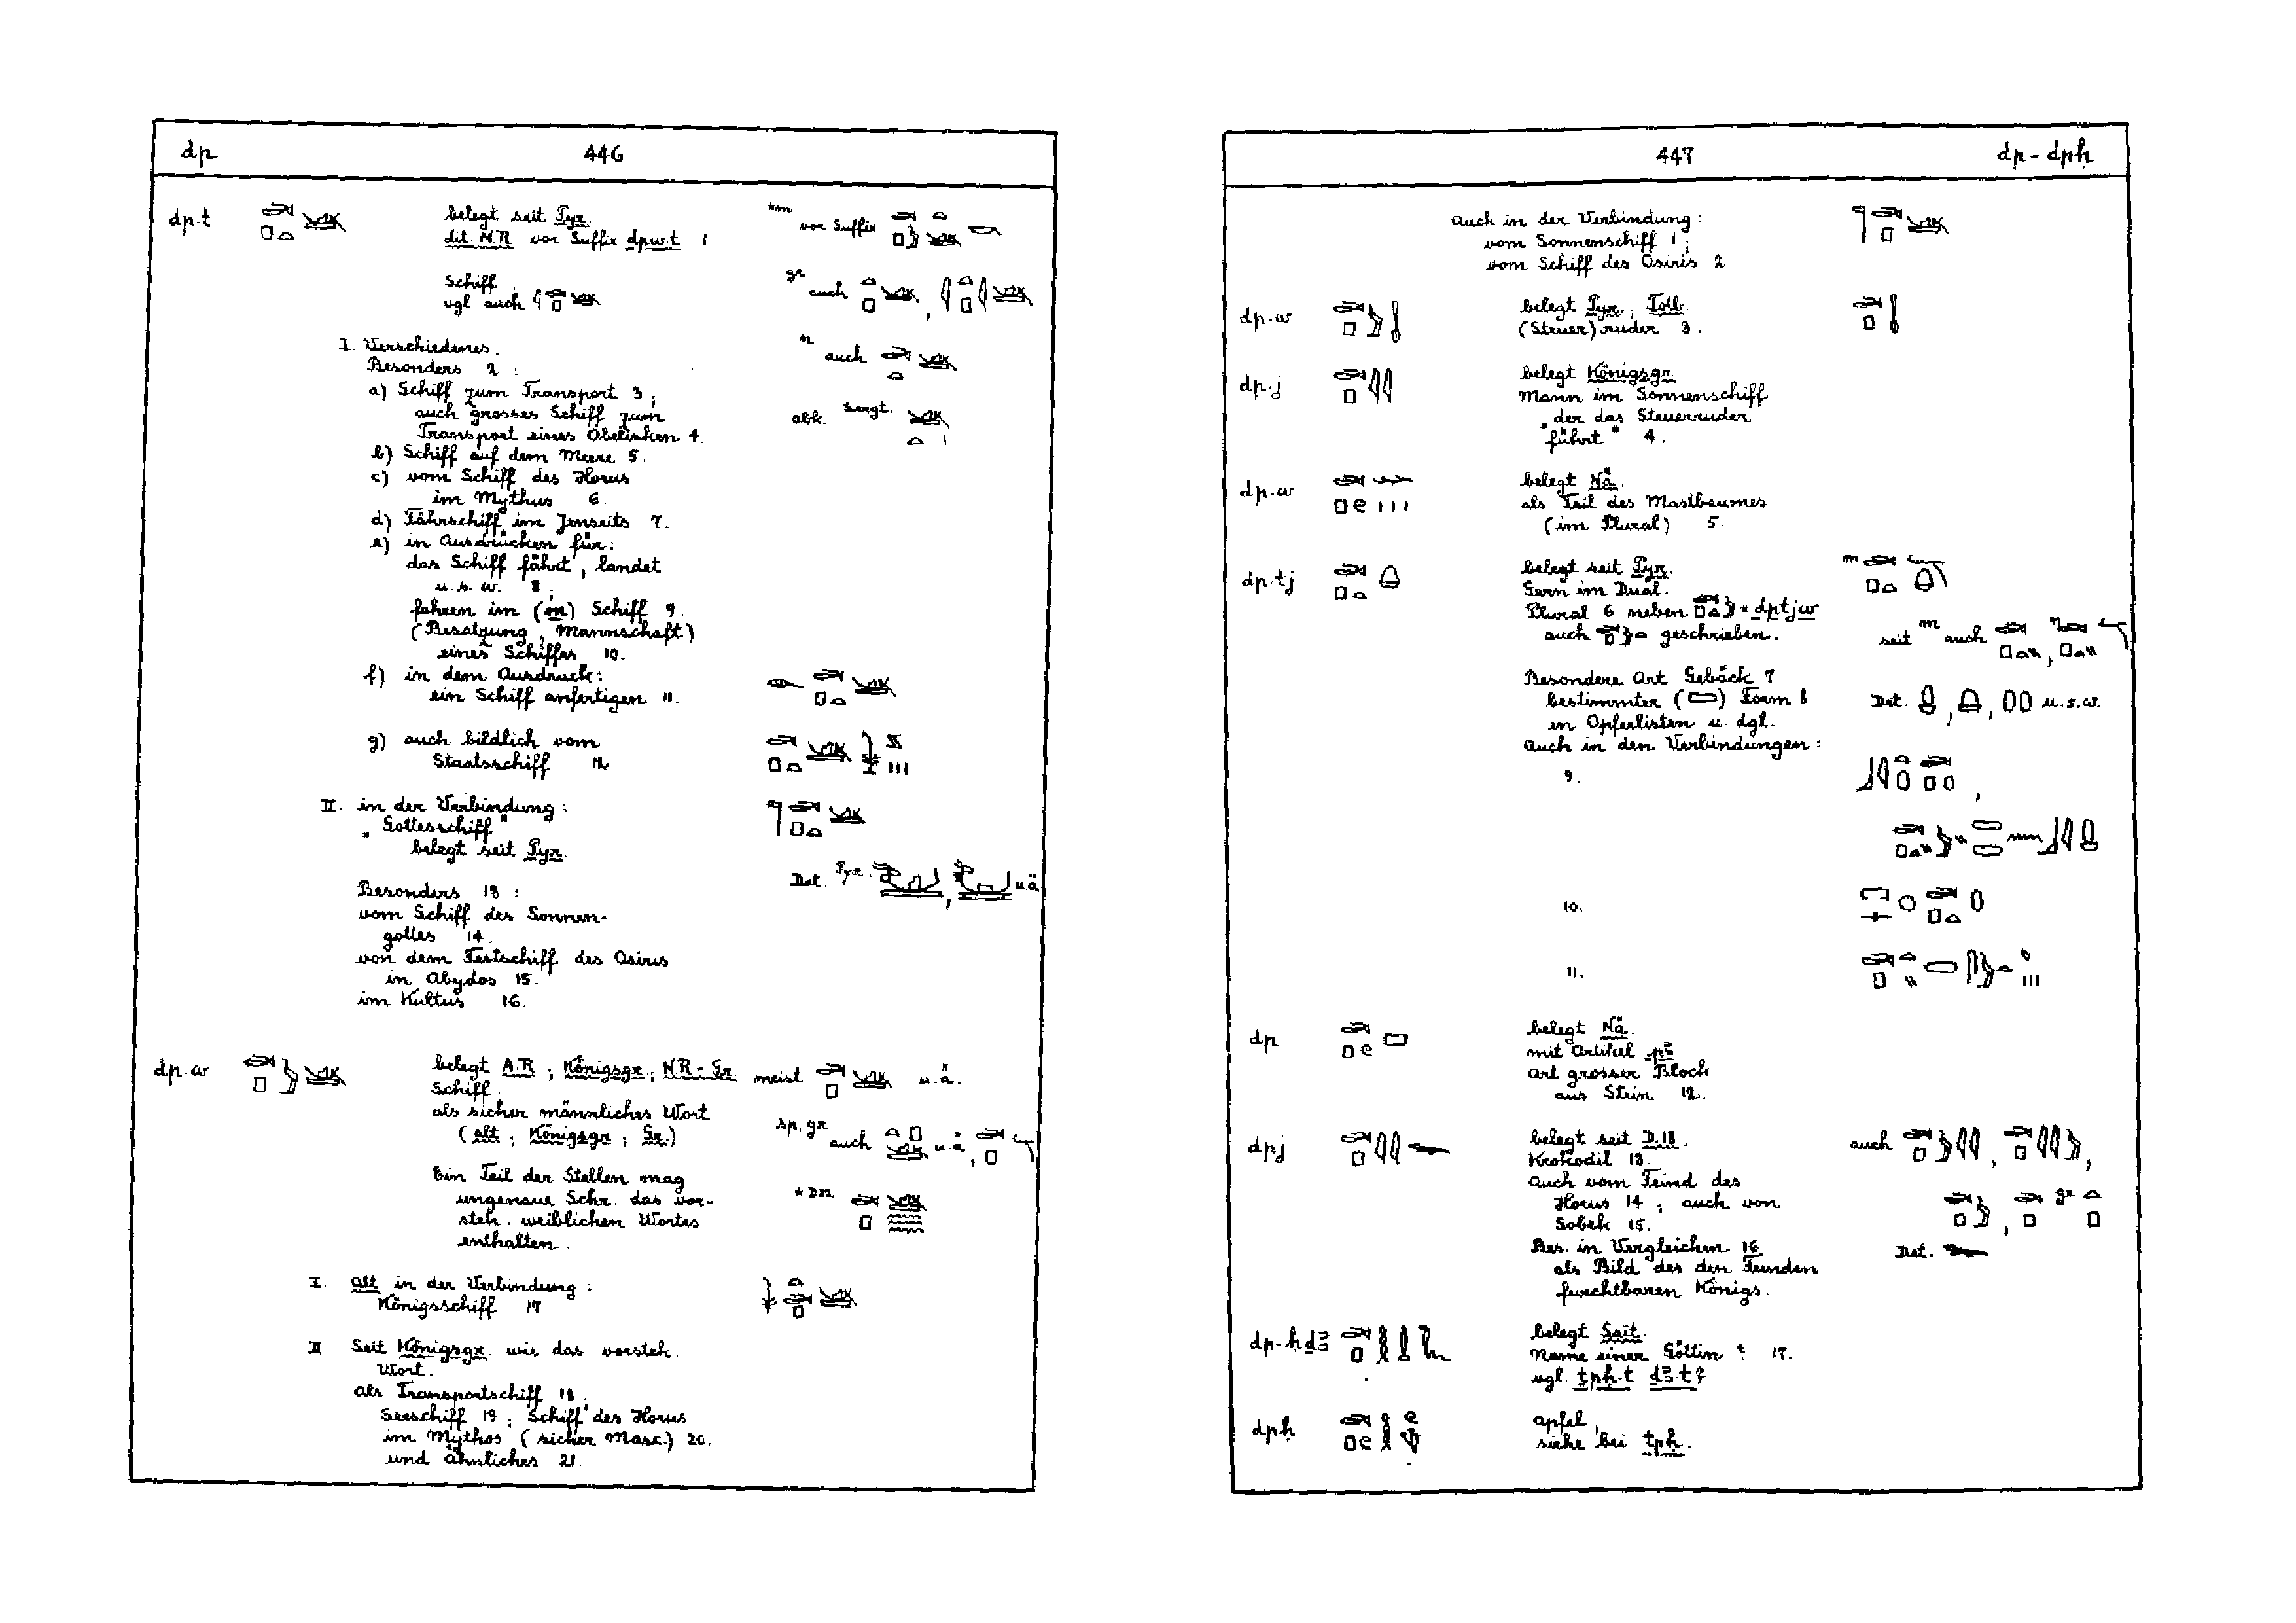 dp 446
dp.t belegt seit Pyr.
dit. M.R vor Suffix dpw.t 1
*m vor Suffix
Schiff.
vgl auch
gr auch
I. Verschiedenes.
Besonders 2 :
n auch
a) Schiff zum Transport 3 ;
auch grosses Schiff zum
Transport eines Obelisken 4.
abk. Sargt.
b) Schiff auf dem Meere 5.
c) vom Schiff des Horus
im Mythus 6.
d) Fährschiff im Jenseits 7.
e) in Ausdrücken für:
das Schiff fährt, landet
u.s.w. 8 ;
fahren im (m) Schiff 9.
(Besatzung, Mannschaft)
eines Schiffes 10.
f) in dem Ausdruck:
ein Schiff anfertigen 11.
g) auch bildlich vom
Staatsschiff 12
II. in der Verbindung:
"Gottesschiff"
belegt seit Pyr.
Det. Pyr. u.ä
Besonders 13 :
vom Schiff des Sonnen-
gottes 14.
von dem Festschiff des Osiris
in Abydos 15.
im Kultus 16.
dp.w belegt A.R ; Königsgr ; NR - Gr. meist u.ä.
Schiff.
als sicher männliches Wort
(alt ; Königsgr ; Gr.)
sp. gr auch u.ä,
Ein Teil der Stellen mag
ungenaue Schr. das vor-
steh. weiblichen Wortes
enthalten.
* D22
I. alt in der Verbindung :
Königsschiff 17
II Seit Königsgr. wie das vorsteh.
Wort.
als Transportschiff 18 ;
Seeschiff 19 ; Schiff des Horus
im Mythos (sicher Masc.) 20.
und Ähnliches 21.
447 dp - dpḥ
auch in der Verbindung :
vom Sonnenschiff 1 ;
vom Schiff des Osiris 2
dp.w belegt Pyr ; Totb.
(Steuer)ruder 3.
dp.j belegt Königsgr.
Mann im Sonnenschiff
"der das Steuerruder
führt" 4.
dp.w belegt Nä.
als Teil des Mastbaumes
(im Plural) 5.
dp.tj belegt seit Pyr.
m
Gern im Dual.
Plural 6 neben * dptjw
auch geschrieben.
seit m auch
Besondere Art Gebäck 7
bestimmter ( ) Form 8
in Opferlisten u. dgl.
Det. , , u.s.w.
Auch in den Verbindungen :
9.
10.
11.
dp belegt Nä.
mit Artikel pꜣ
Art grosser Block
aus Stein 12.
dpj belegt seit D.18.
Krokodil 13.
auch
Auch vom Feind des
Horus 14 ; auch von
Sobek 15.
gr
Bes. in Vergleichen 16
als Bild des den Feinden
furchtbaren Königs.
Det.
dp-ḥḏꜣ belegt Sait.
Name einer Göttin ? 17.
vgl. tpḥ.t ḏꜣ.t ?
dpḥ apfel,
siehe bei tpḥ.